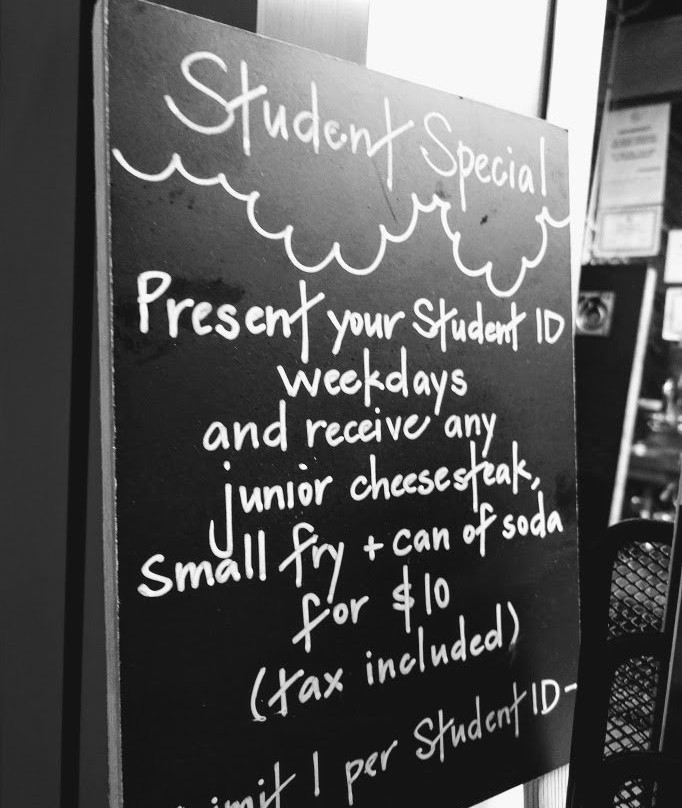 Student Special
Present your Student ID
weekdays
and receive any
junior cheesesteak,
Small fry + can of soda
for $10
(tax included)
Limit 1 per Student ID-